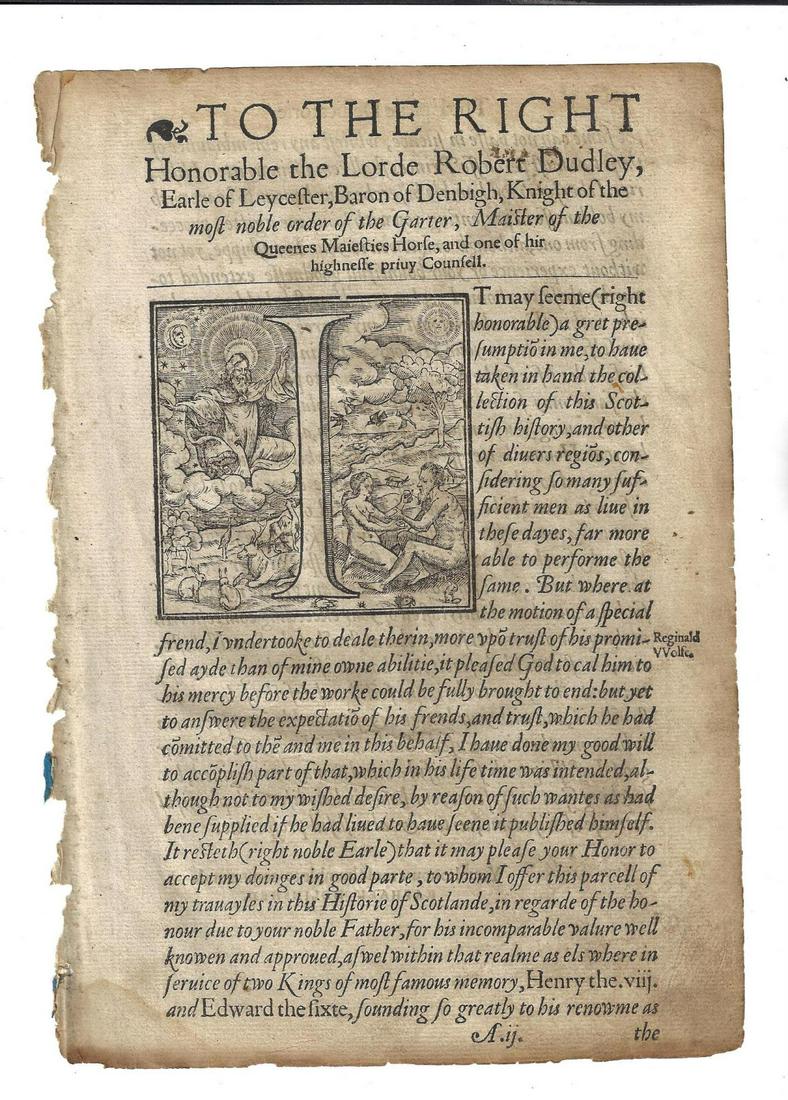 TO THE RIGHT
Honorable the Lorde Robert Dudley,
Earle of Leyceſter, Baron of Denbigh, Knight of the
moſt noble order of the Garter, Maiſter of the
Queenes Maieſties Horſe, and one of hir
highneſſe priuy Counſell.
IT may ſeeme(right
honorable)a gret pre-
ſumptiō in me, to haue
taken in hand the col-
lection of this Scot-
tiſh hiſtory, and other
of diuers regiōs, con-
ſidering ſo many ſuf-
ficient men as liue in
theſe dayes, far more
able to performe the
ſame. But where at
the motion of a ſpecial
frend, I vndertooke to deale therin, more vpō truſt of his promi-
ſed ayde than of mine owne abilitie, it pleaſed God to cal him to
his mercy before the worke could be fully brought to end: but yet
to anſwere the expectatiō of his frends, and truſt, which he had
cōmitted to thē and me in this behalf, I haue done my good will
to accōpliſh part of that, which in his life time was intended, al-
though not to my wiſhed deſire, by reaſon of ſuch wantes as had
bene ſupplied if he had liued to haue ſeene it publiſhed himſelf.
It reſteth(right noble Earle)that it may pleaſe your Honor to
accept my doinges in good parte, to whom I offer this parcell of
my trauayles in this Hiſtorie of Scotlande, in regarde of the ho-
nour due to your noble Father, for his incomparable valure well
knowen and approued, aſwel within that realme as els where in
ſeruice of two Kings of moſt famous memory, Henry the .viij.
and Edward the ſixte, ſounding ſo greatly to his renowme as
Reginald
VVolfe.
A.ij.
the